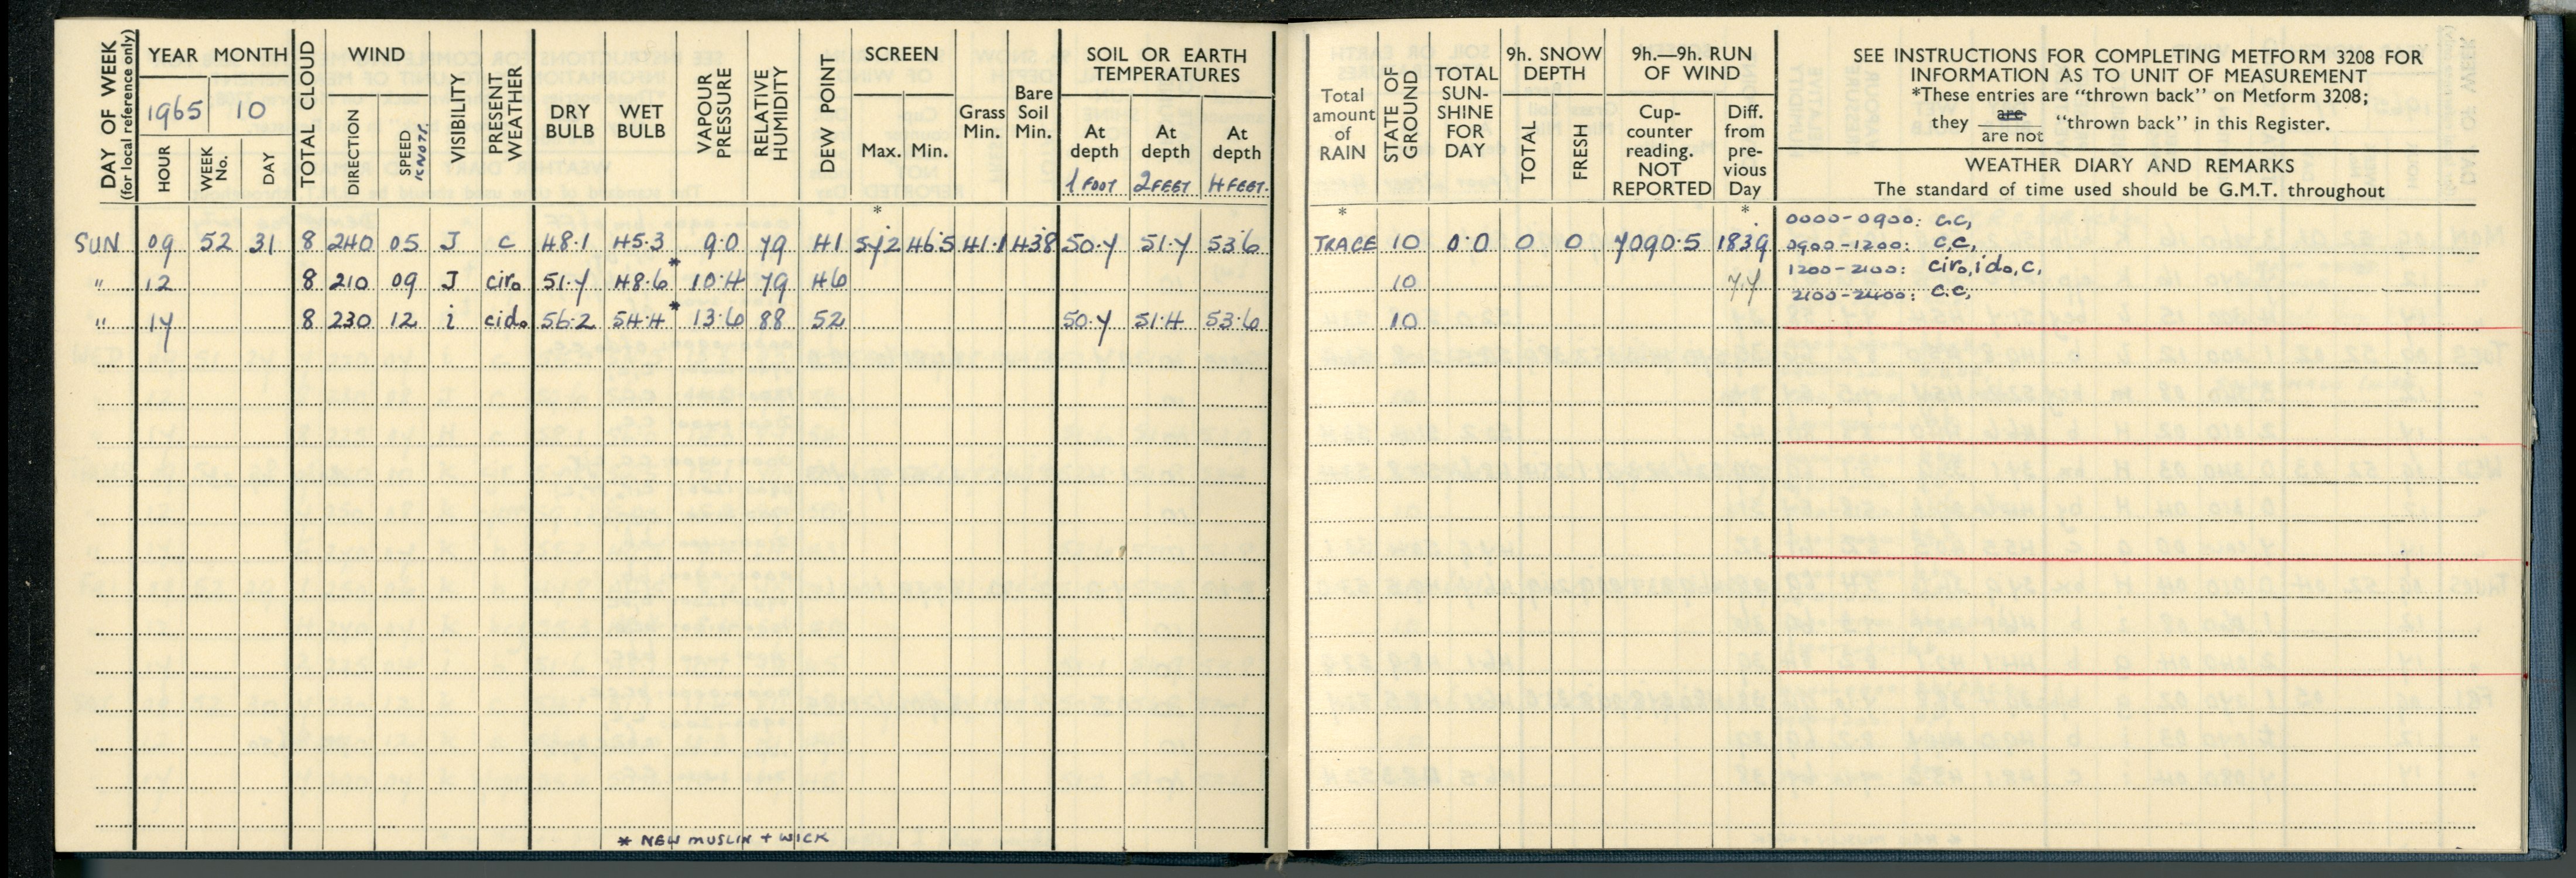 DAY OF WEEK
(for local reference only)
YEAR MONTH
1965 10
HOUR WEEK No. DAY
TOTAL CLOUD
WIND
DIRECTION SPEED KNOTS.
VISIBILITY
PRESENT WEATHER
DRY BULB
WET BULB
VAPOUR PRESSURE
RELATIVE HUMIDITY
DEW POINT
SCREEN
Max. Min.
Grass Min.
Bare Soil Min.
SOIL OR EARTH
TEMPERATURES
At depth 1 FOOT
At depth 2 FEET
At depth 4 FEET.
Total amount of RAIN
STATE OF GROUND
TOTAL SUN-SHINE FOR DAY
9h. SNOW DEPTH
TOTAL FRESH
9h.—9h. RUN OF WIND
Cup-counter reading. NOT REPORTED
Diff. from pre-vious Day
SEE INSTRUCTIONS FOR COMPLETING METFORM 3208 FOR
INFORMATION AS TO UNIT OF MEASUREMENT
*These entries are "thrown back" on Metform 3208;
they are / are not "thrown back" in this Register.
WEATHER DIARY AND REMARKS
The standard of time used should be G.M.T. throughout
* * *
SUN 09 52 31 8 240 05 J c 48.1 45.3 9.0 79 41 57.2 46.5 41.1 43.8 50.7 51.7 53.6 TRACE 10 0.0 0 0 7090.5 183.9
" 12 8 210 09 J ciro 51.7 48.6* 10.4 79 46 10 77
" 17 8 230 12 i cido 56.2 54.4* 13.6 88 52 50.7 51.4 53.6 10
0000-0900: c.c,
0900-1200: c,c,
1200-2100: ciro, ido, c,
2100-2400: c.c,
* NEW MUSLIN + WICK